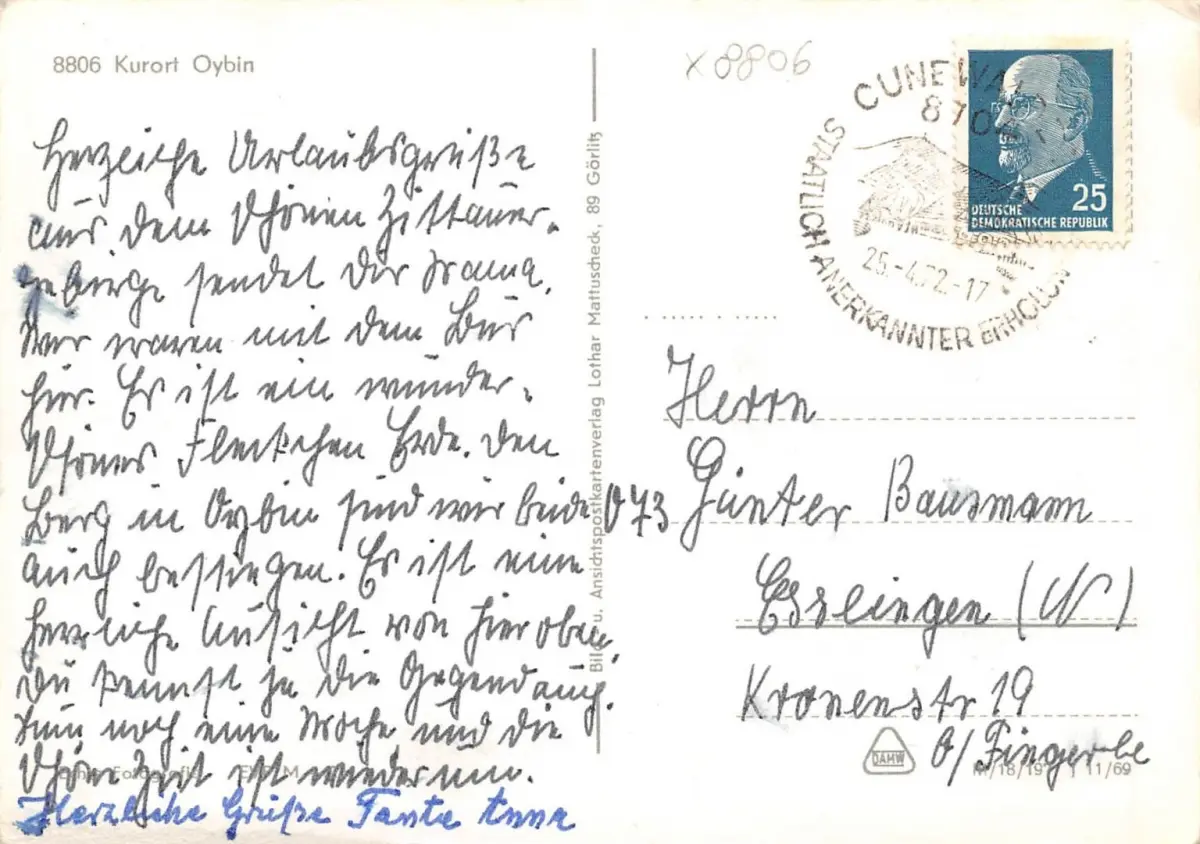 8806 Kurort Oybin
Herzliche Urlaubsgrüße
aus dem schönen Zittauer-
gebirge sendet Dir
Wir waren mit dem Bus
hier. Es ist ein wunder-
schönes Fleckchen Erde. Den
Berg in Oybin sind wir beide
auch bestiegen. Es ist eine
herrliche Aussicht von hier oben,
Du kennst ja die Gegend auch.
Nun noch eine Woche und die
schöne Zeit ist wieder um.
Herzliche Grüße Tante Anna
Bild u. Ansichtspostkartenverlag Lothar Mattuscheck, 89 Görlitz
x 8806
CUNEWA
STAATLICH ANERKANNTER ERHOLUN
25.-4.72.-17
25
DEUTSCHE
DEMOKRATISCHE REPUBLIK
Herrn
073 Günter Bausmann
Esslingen (N)
Kronenstr 19
DAMW
11/69